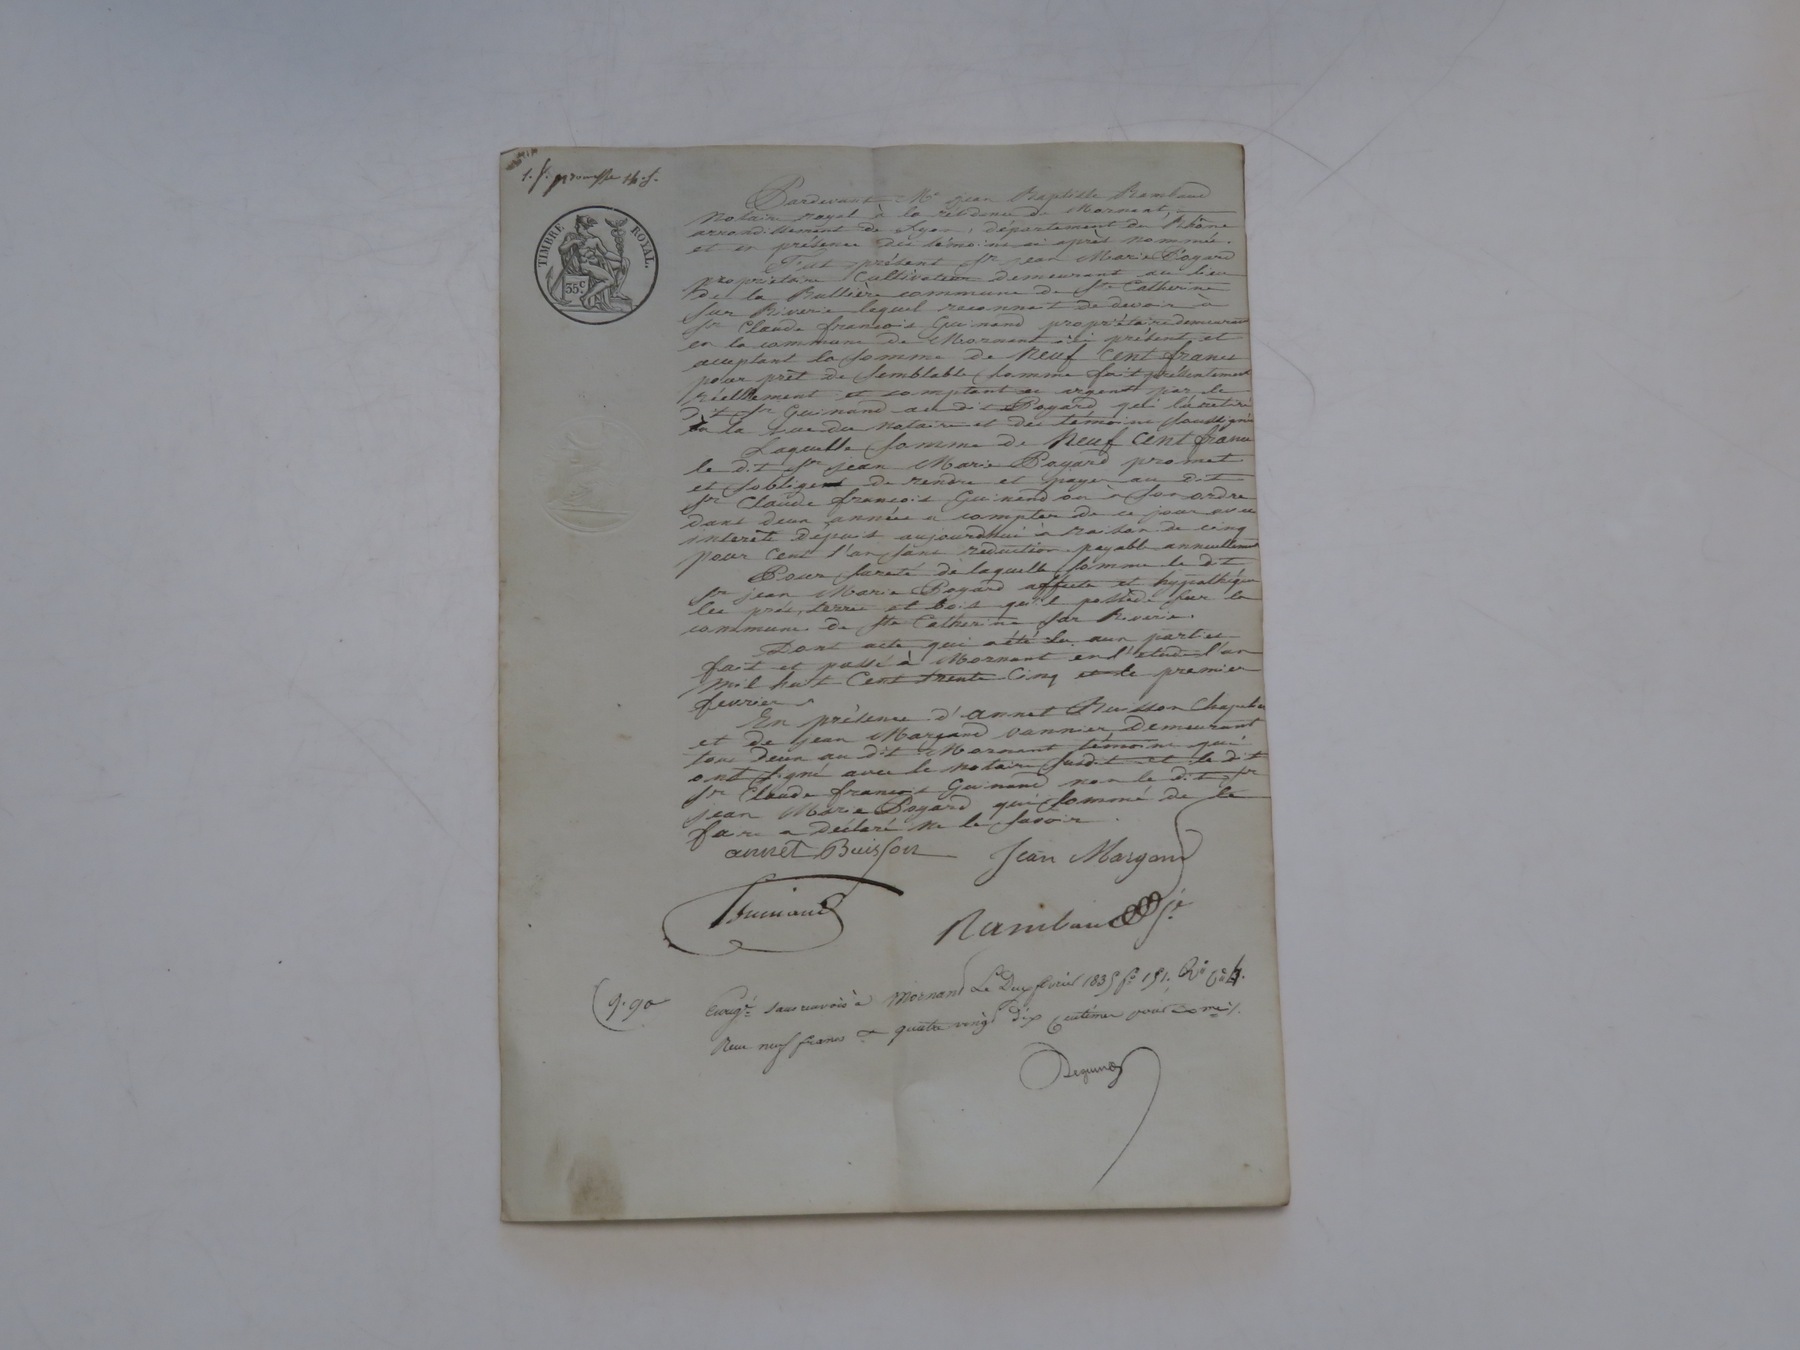 TIMBRE ROYAL.
35c
Pardevant Me jean Baptiste Rambaud
Notaire royal à la residence de Mornant,
arrondissement de Lyon, département du Rhône
et en présence des témoins ci après nommés.
Fut présent Sr jean Marie Poyard
propriétaire Cultivateur demeurant au lieu
de la Rullière commune de Ste Catherine
sur Riverie lequel reconnait de devoir à
Sr Claude françois Guinand propriétaire demeurant
en la commune de Mornant ici présent et
aceptant la somme de Neuf Cent francs
pour prêt de semblable somme fait présentement
réellement et comptant en argent par le
dit Sr Guinand au dit Poyard qui l'a retiré
à la vue du notaire et des témoins soussignés
Laquelle somme de Neuf Cent francs
le dit Sr jean Marie Poyard promet
et s'oblige de rendre et payer au dit
Sr Claude françois Guinand ou à son ordre
dans deux années a compter de ce jour avec
interêt depuis aujourdhui à raison de cinq
pour cent l'an sans reduction payable annuellement
Pour sureté de laquelle somme le dit
Sr jean Marie Poyard affecte et hypothéque
les prés, terres et bois qu'il possède sur la
commune de Ste Catherine sur Riverie.
Dont acte qui a été lu aux parties
fait et passé à Mornant en l'étude l'an
mil huit Cent trente Cinq et le premier
fevrier
En présence d'annet Buisson Chapelier
et de jean Margand vannier Demeurant
tous deux au dit Mornant témoins qui
ont signé avec le notaire susdit et le dit
Sr Claude françois Guinand non le dit Sr
jean Marie Poyard qui sommé de le
faire a déclaré ne le savoir.
annet Buisson Jean Margand
Guinand Rambaud
9.90 Enregé sans renvois à Mornant Le Deux février 1835 fo 151.
Reçu neuf francs quatre vingt dix Centimes pour